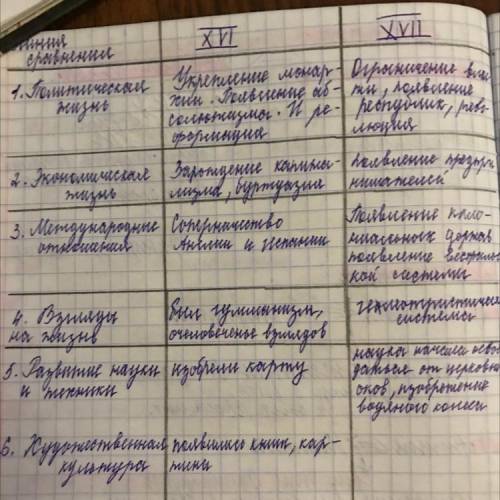 линия
сравнения
XVI
XVII
1. Политическая
жизнь
Укрепление монар-
хии. Появление аб-
солютизма. И ре-
формация
Ограничение влас
ти, появление
республик, рево
люция
2. Экономическая
жизнь
Зарождение капита-
лизма, буржуазия
появление предпри-
нимателей
3. Международные
отношения
Соперничество
Англии и Испании
Появление коло-
ниальных держав
появление вестфаль
кой системы
4. Взгляды
на жизнь
был гуманизм,
очеловеченье взглядов
система
5. Развитие науки
и техники
изобрели карту
наука начала осво
даться от церковн
оков, изобретение
водяного колеса
6. Художественная
культура
появились книги, кар-
тины